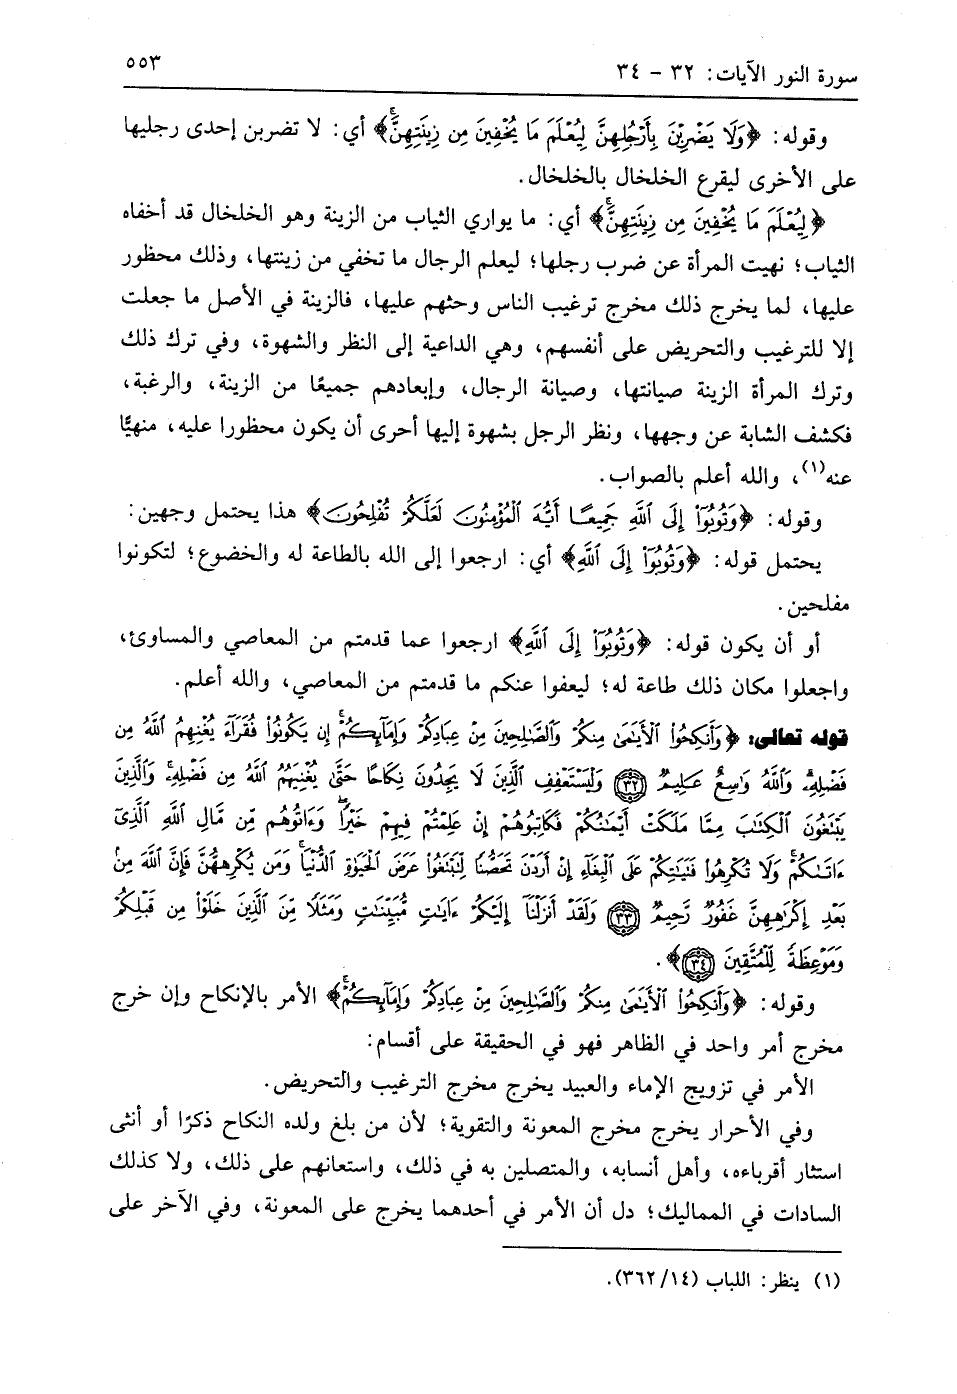 سورة النور الآيات: ٣٢ - ٣٤
٥٥٣
وقوله: ﴿وَلَا يَضْرِبْنَ بِأَرْجُلِهِنَّ لِيُعْلَمَ مَا يُخْفِينَ مِن زِينَتِهِنَّۚ﴾ أي: لا تضربن إحدى رجليها
على الأخرى ليقرع الخلخال بالخلخال.
﴿لِيُعْلَمَ مَا يُخْفِينَ مِن زِينَتِهِنَّۚ﴾ أي: ما يواري الثياب من الزينة وهو الخلخال قد أخفاه
الثياب؛ نهيت المرأة عن ضرب رجلها؛ ليعلم الرجال ما تخفي من زينتها، وذلك محظور
عليها، لما يخرج ذلك مخرج ترغيب الناس وحثهم عليها، فالزينة في الأصل ما جعلت
إلا للترغيب والتحريض على أنفسهم، وهي الداعية إلى النظر والشهوة، وفي ترك ذلك
وترك المرأة الزينة صيانتها، وصيانة الرجال، وإبعادهم جميعًا من الزينة، والرغبة،
فكشف الشابة عن وجهها، ونظر الرجل بشهوة إليها أحرى أن يكون محظورا عليه، منهيًّا
عنه(١)، والله أعلم بالصواب.
وقوله: ﴿وَتُوبُوٓاْ إِلَى ٱللَّهِ جَمِيعًا أَيُّهَ ٱلْمُؤْمِنُونَ لَعَلَّكُمْ تُفْلِحُونَ﴾ هذا يحتمل وجهين:
يحتمل قوله: ﴿وَتُوبُوٓاْ إِلَى ٱللَّهِ﴾ أي: ارجعوا إلى الله بالطاعة له والخضوع؛ لتكونوا
مفلحين.
أو أن يكون قوله: ﴿وَتُوبُوٓاْ إِلَى ٱللَّهِ﴾ ارجعوا عما قدمتم من المعاصي والمساوئ،
واجعلوا مكان ذلك طاعة له؛ ليعفوا عنكم ما قدمتم من المعاصي، والله أعلم.
قوله تعالى: ﴿وَأَنكِحُواْ ٱلْأَيَٰمَىٰ مِنكُمْ وَٱلصَّٰلِحِينَ مِنْ عِبَادِكُمْ وَإِمَآئِكُمْۚ إِن يَكُونُواْ فُقَرَآءَ يُغْنِهِمُ ٱللَّهُ مِن
فَضْلِهِۦۗ وَٱللَّهُ وَٰسِعٌ عَلِيمٌ ﴿٣٢﴾ وَلْيَسْتَعْفِفِ ٱلَّذِينَ لَا يَجِدُونَ نِكَاحًا حَتَّىٰ يُغْنِيَهُمُ ٱللَّهُ مِن فَضْلِهِۦۗ وَٱلَّذِينَ
يَبْتَغُونَ ٱلْكِتَٰبَ مِمَّا مَلَكَتْ أَيْمَٰنُكُمْ فَكَاتِبُوهُمْ إِنْ عَلِمْتُمْ فِيهِمْ خَيْرًاۖ وَءَاتُوهُم مِّن مَّالِ ٱللَّهِ ٱلَّذِىٓ
ءَاتَىٰكُمْۚ وَلَا تُكْرِهُواْ فَتَيَٰتِكُمْ عَلَى ٱلْبِغَآءِ إِنْ أَرَدْنَ تَحَصُّنًا لِّتَبْتَغُواْ عَرَضَ ٱلْحَيَوٰةِ ٱلدُّنْيَاۚ وَمَن يُكْرِههُّنَّ فَإِنَّ ٱللَّهَ مِنۢ
بَعْدِ إِكْرَٰهِهِنَّ غَفُورٌ رَّحِيمٌ ﴿٣٣﴾ وَلَقَدْ أَنزَلْنَآ إِلَيْكُمْ ءَايَٰتٍ مُّبَيِّنَٰتٍ وَمَثَلًا مِّنَ ٱلَّذِينَ خَلَوْاْ مِن قَبْلِكُمْ
وَمَوْعِظَةً لِّلْمُتَّقِينَ ﴿٣٤﴾﴾.
وقوله: ﴿وَأَنكِحُواْ ٱلْأَيَٰمَىٰ مِنكُمْ وَٱلصَّٰلِحِينَ مِنْ عِبَادِكُمْ وَإِمَآئِكُمْۚ﴾ الأمر بالإنكاح وإن خرج
مخرج أمر واحد في الظاهر فهو في الحقيقة على أقسام:
الأمر في تزويج الإماء والعبيد يخرج مخرج الترغيب والتحريض.
وفي الأحرار يخرج مخرج المعونة والتقوية؛ لأن من بلغ ولده النكاح ذكرًا أو أنثى
استثار أقرباءه، وأهل أنسابه، والمتصلين به في ذلك، واستعانهم على ذلك، ولا كذلك
السادات في المماليك؛ دل أن الأمر في أحدهما يخرج على المعونة، وفي الآخر على
(١) ينظر: اللباب (٣٦٢/١٤).